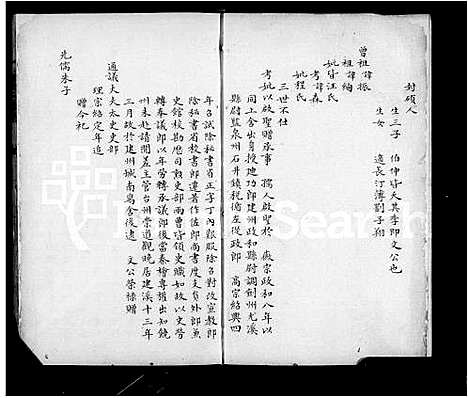 封碩人
生三子 伯仲皆夭其季即文公也
生女 適長汀簿劉子翔
曾祖諱振
祖諱絢
妣皆汪氏
考諱森
妣程氏
三世不仕
考妣以啟聖贈承事 孺人啟聖於 徽宗政和八年以
同上舍出身授迪功郎建州政和縣尉調劍州尤溪
縣尉監泉州石井鎮稅循左從政郎 高宗紹興四
年召試除秘書省正字丁內艱服除召對改宣教郎
除秘書省校書郎遷著作佐郎尚書度支員外郎兼
史館校勘歷司勳吏部兩曹皆領史職如故以史勞
轉奉議郎以年勞轉承議郎後當秦檜專講出知饒
州未赴請間差主管台州崇道觀晚居建溪十三年
三月政於建州城南寓舍後逮 文公榮棣贈
通議大夫太史吏部
理宗紹定年追
贈今祀
先儒朱子